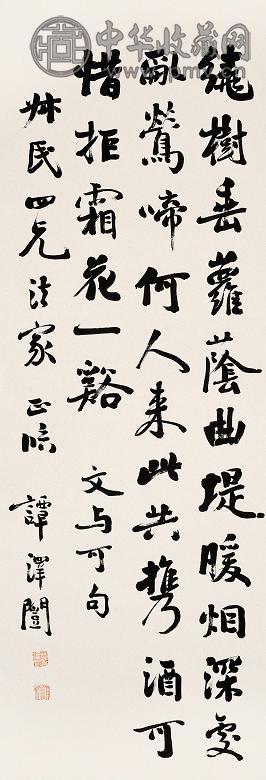 中华收藏网
繞樹垂蘿蔭曲堤暖烟深處
亂鶯啼何人来此共携酒可
惜拒霜花一谿 文与可句
民四兄法家正 譚澤闓